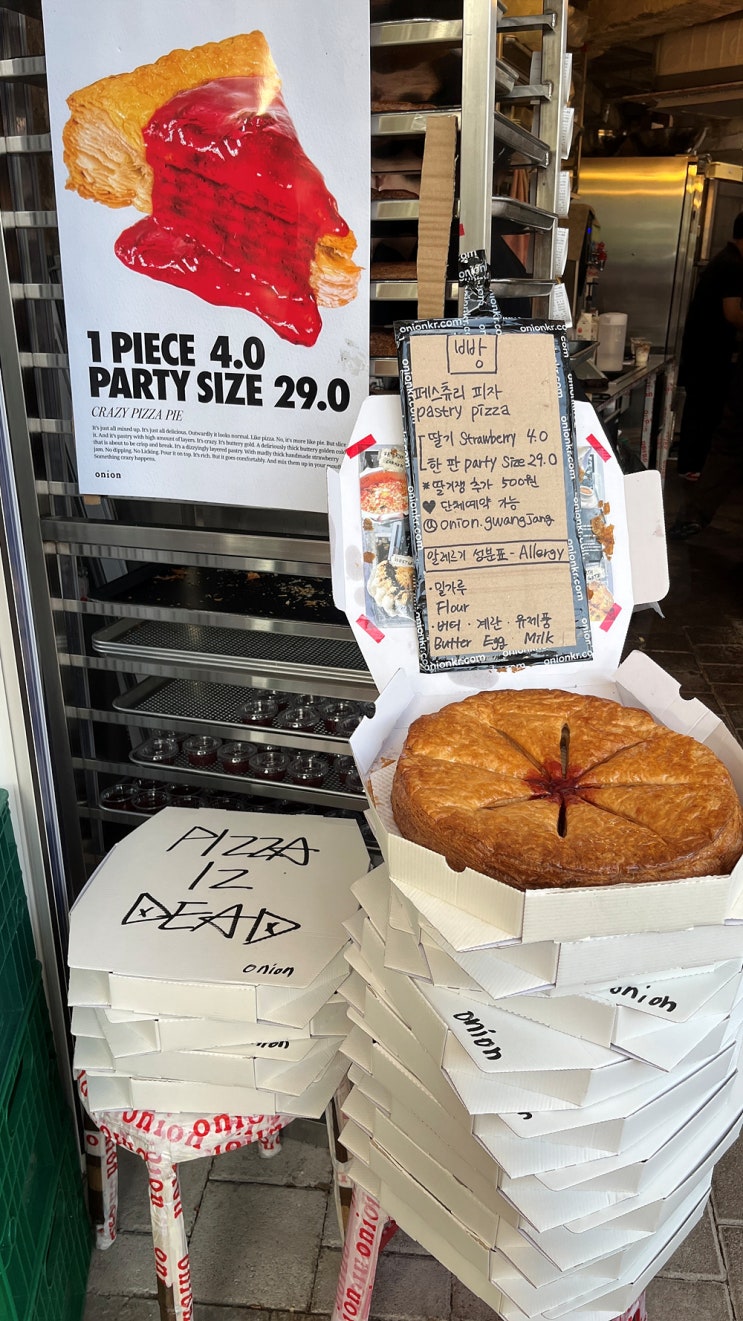 1 PIECE 4.0
PARTY SIZE 29.0
CRAZY PIZZA PIE
It's just all mixed up. It's just all delicious. Outwardly it looks normal. Like pizza. No, it's more like pie. But slice
it. And it's pastry with high amount of layers. It's crazy. It's buttery gold. A deliciously thick buttery golden
that is about to crisp and break. It's a dizzyingly layered pastry. With madly thick handmade strawberry
jam. No dipping. No Licking. Pour it on top. It's rich. But it goes comfortably. And mix them up in your
something crazy happens.
onion
onionkr.com
onionkr.co
빵
페스츄리 피자
pastry pizza
딸기 Strawberry 4.0
한 판 party Size 29.0
*딸기잼 추가 500원
♥ 단체예약 가능
onion.gwangjang
알레르기 성분표-Allergy
·밀가루
Flour
·버터 · 계란 · 유제품
Butter Egg Milk
onionkr.com
onionkr.com
PIZZA
IZ
DEAD
onion
onion
onion
onion
onion
onion
onion